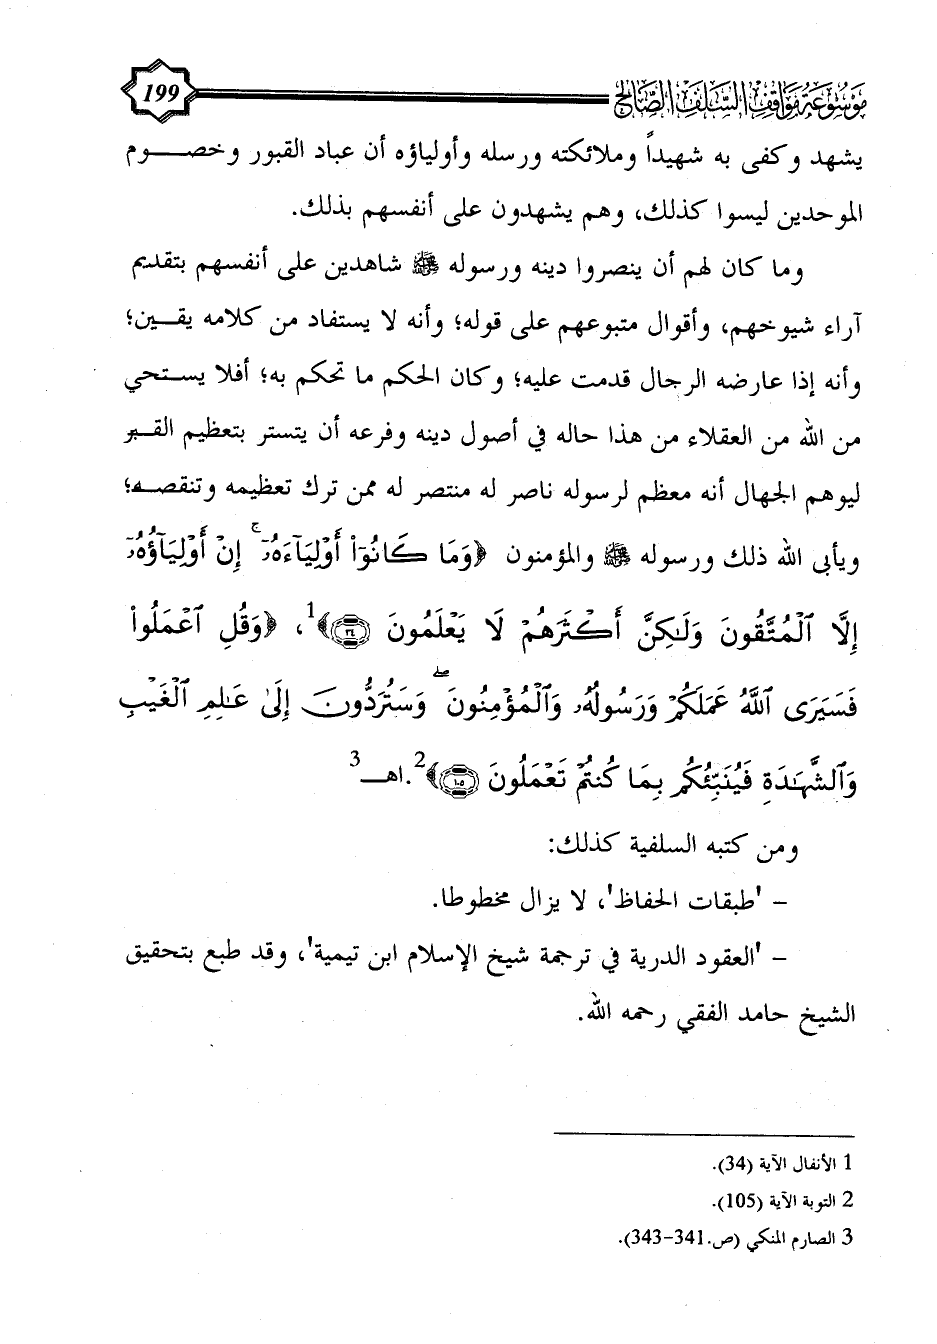 موسوعة مواقف السلف الصالح
199
يشهد وكفى به شهيداً وملائكته ورسله وأولياؤه أن عباد القبور وخصـــوم
الموحدين ليسوا كذلك، وهم يشهدون على أنفسهم بذلك.
وما كان لهم أن ينصروا دينه ورسوله ﷺ شاهدين على أنفسهم بتقديم
آراء شيوخهم، وأقوال متبوعهم على قوله؛ وأنه لا يستفاد من كلامه يقين؛
وأنه إذا عارضه الرجال قدمت عليه؛ وكان الحكم ما تحكم به؛ أفلا يستحي
من الله من العقلاء من هذا حاله في أصول دينه وفرعه أن يتستر بتعظيم القبر
ليوهم الجهال أنه معظم لرسوله ناصر له منتصر له ممن ترك تعظيمه وتنقصه؛
ويأبى الله ذلك ورسوله ﷺ والمؤمنون ﴿وَمَا كَانُوٓا۟ أَوْلِيَآءَهُۥٓ ۚ إِنْ أَوْلِيَآؤُهُۥٓ
إِلَّا ٱلْمُتَّقُونَ وَلَـٰكِنَّ أَكْثَرَهُمْ لَا يَعْلَمُونَ ٣٤﴾1، ﴿وَقُلِ ٱعْمَلُوا۟
فَسَيَرَى ٱللَّهُ عَمَلَكُمْ وَرَسُولُهُۥ وَٱلْمُؤْمِنُونَ ۖ وَسَتُرَدُّونَ إِلَىٰ عَـٰلِمِ ٱلْغَيْبِ
وَٱلشَّهَـٰدَةِ فَيُنَبِّئُكُم بِمَا كُنتُمْ تَعْمَلُونَ ١٠٥﴾2.اهـ3
ومن كتبه السلفية كذلك:
- 'طبقات الحفاظ'، لا يزال مخطوطا.
- 'العقود الدرية في ترجمة شيخ الإسلام ابن تيمية'، وقد طبع بتحقيق
الشيخ حامد الفقي رحمه الله.
1 الأنفال الآية (34).
2 التوبة الآية (105).
3 الصارم المنكي (ص.341-343).